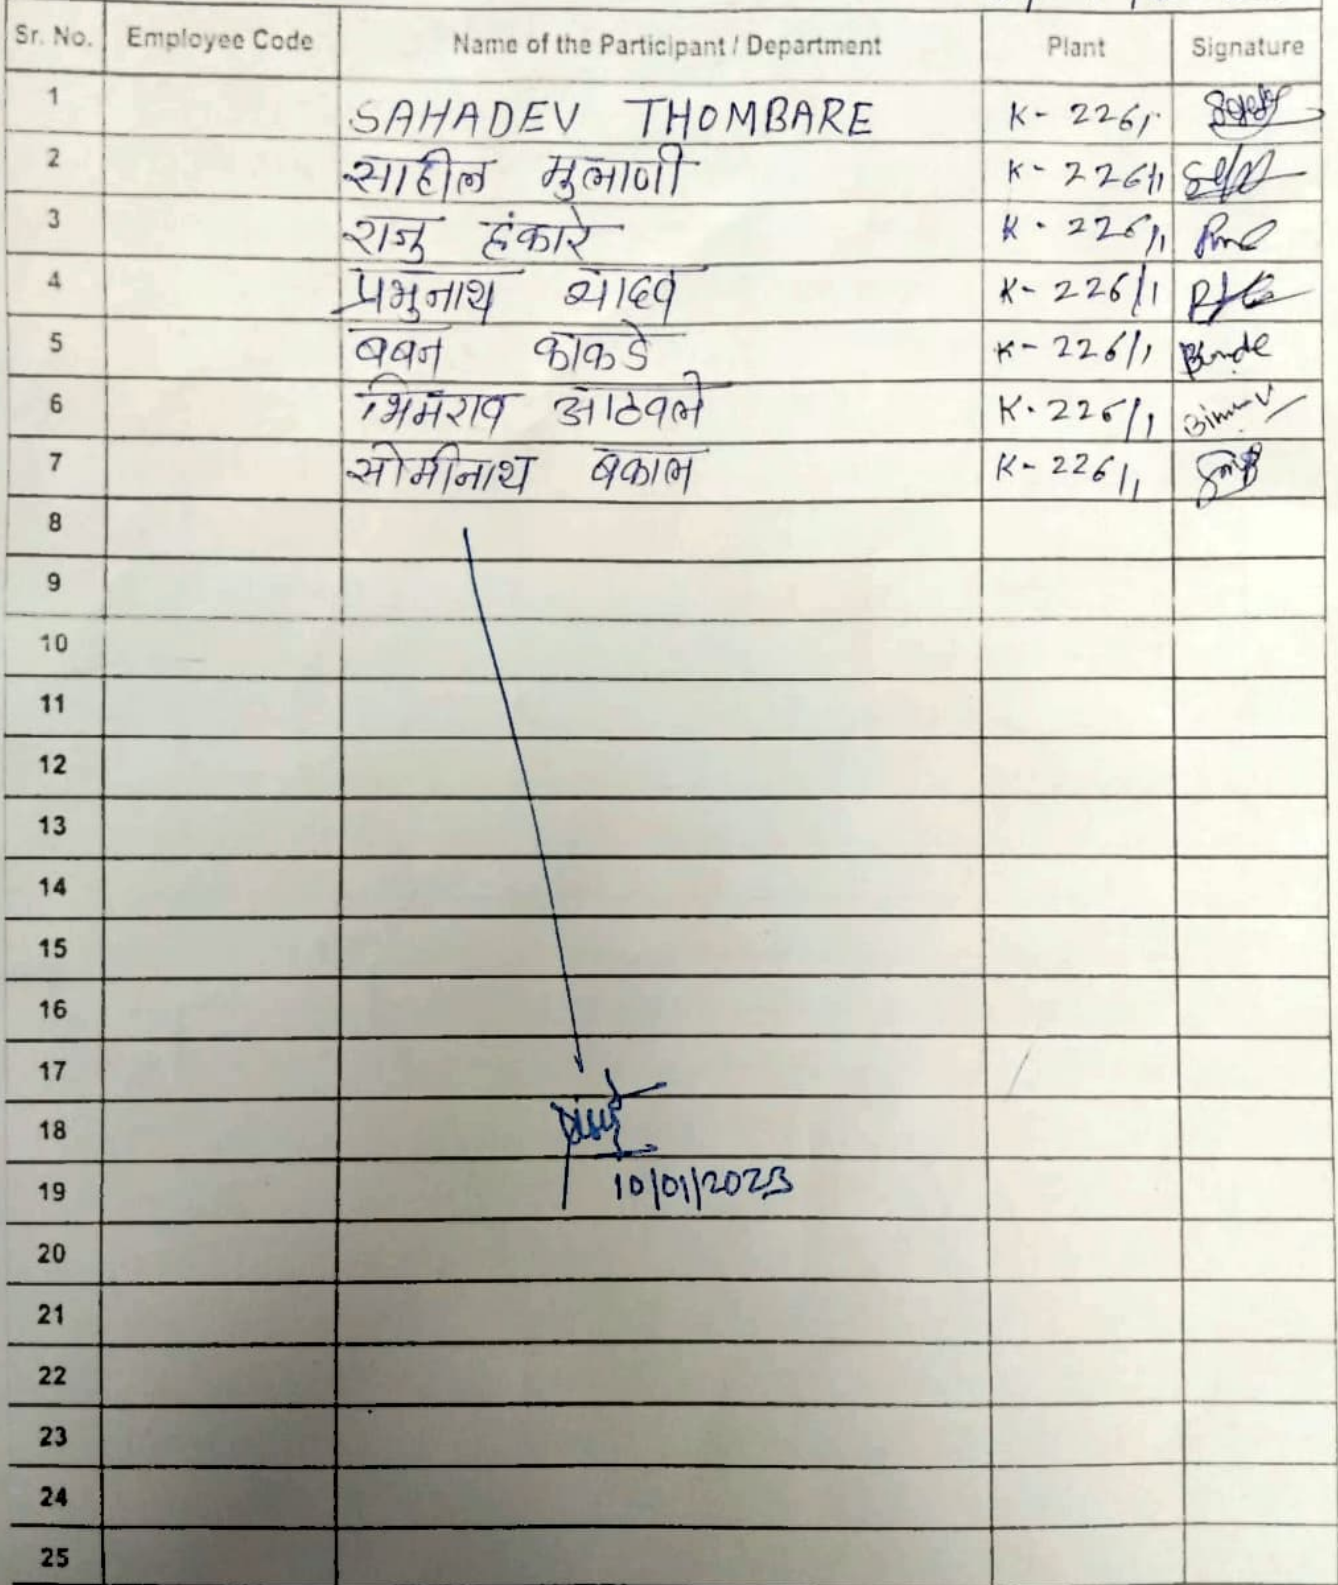 Sr. No. Employee Code Name of the Participant / Department Plant Signature
1 SAHADEV THOMBARE K-226/1
2 साहील मुलाणी K-226/1
3 राजु हंकारे K-226/1
4 प्रभुनाथ यादव K-226/1
5 बबन काकडे K-226/1
6 भिमराव आठवले K-226/1
7 सोमीनाथ बकाल K-226/1
8
9
10
11
12
13
14
15
16
17
18
19 10/01/2023
20
21
22
23
24
25